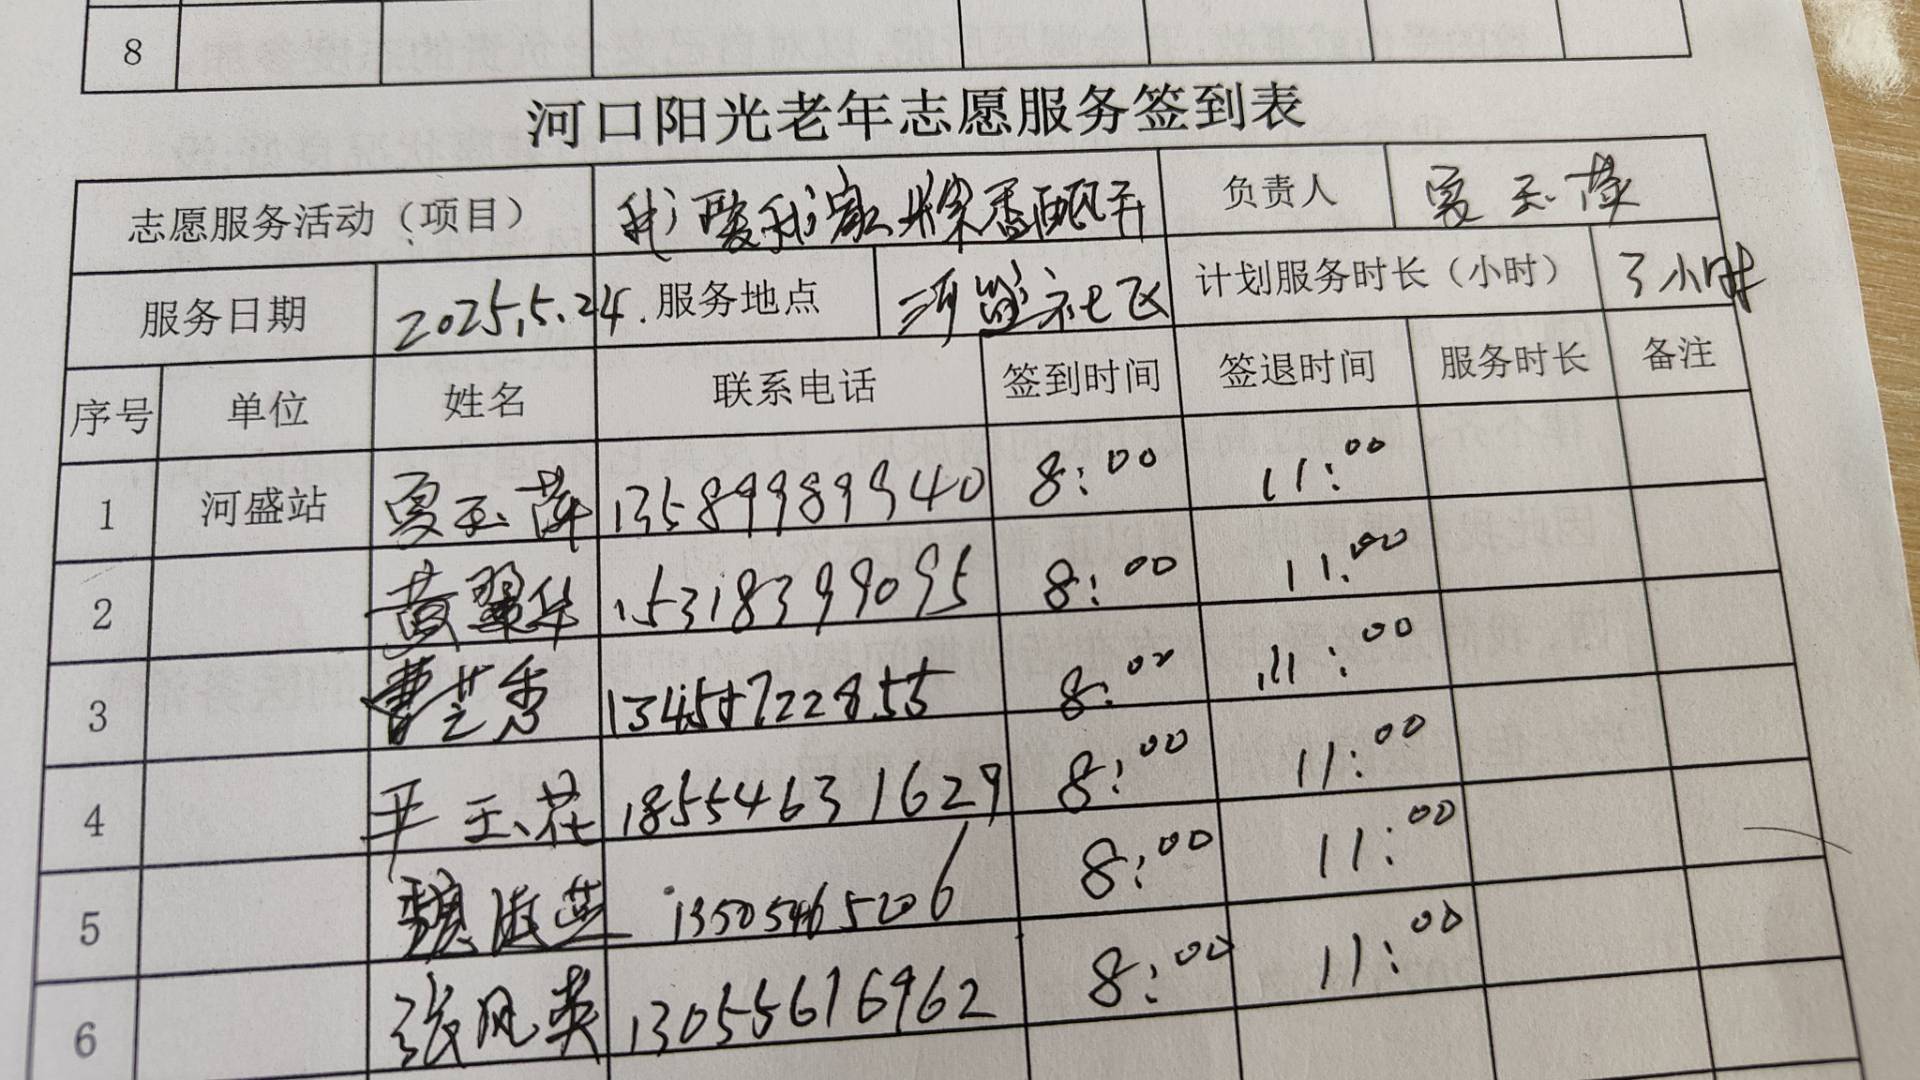 8
河口阳光老年志愿服务签到表
志愿服务活动（项目） 我爱我家 负责人 夏玉萍
服务日期 2025.5.24. 服务地点 河盛社区 计划服务时长（小时） 3小时
序号 单位 姓名 联系电话 签到时间 签退时间 服务时长 备注
1 河盛站 夏玉萍 13589989940 8:00 11:00
2 黄翠华 15318399095 8:00 11:00
3 曹兰香 8:00 11:00
4 平玉花 18554631629 8:00 11:00
5 魏海燕 13505465206 8:00 11:00
6 张风英 13055676962 8:00 11:00